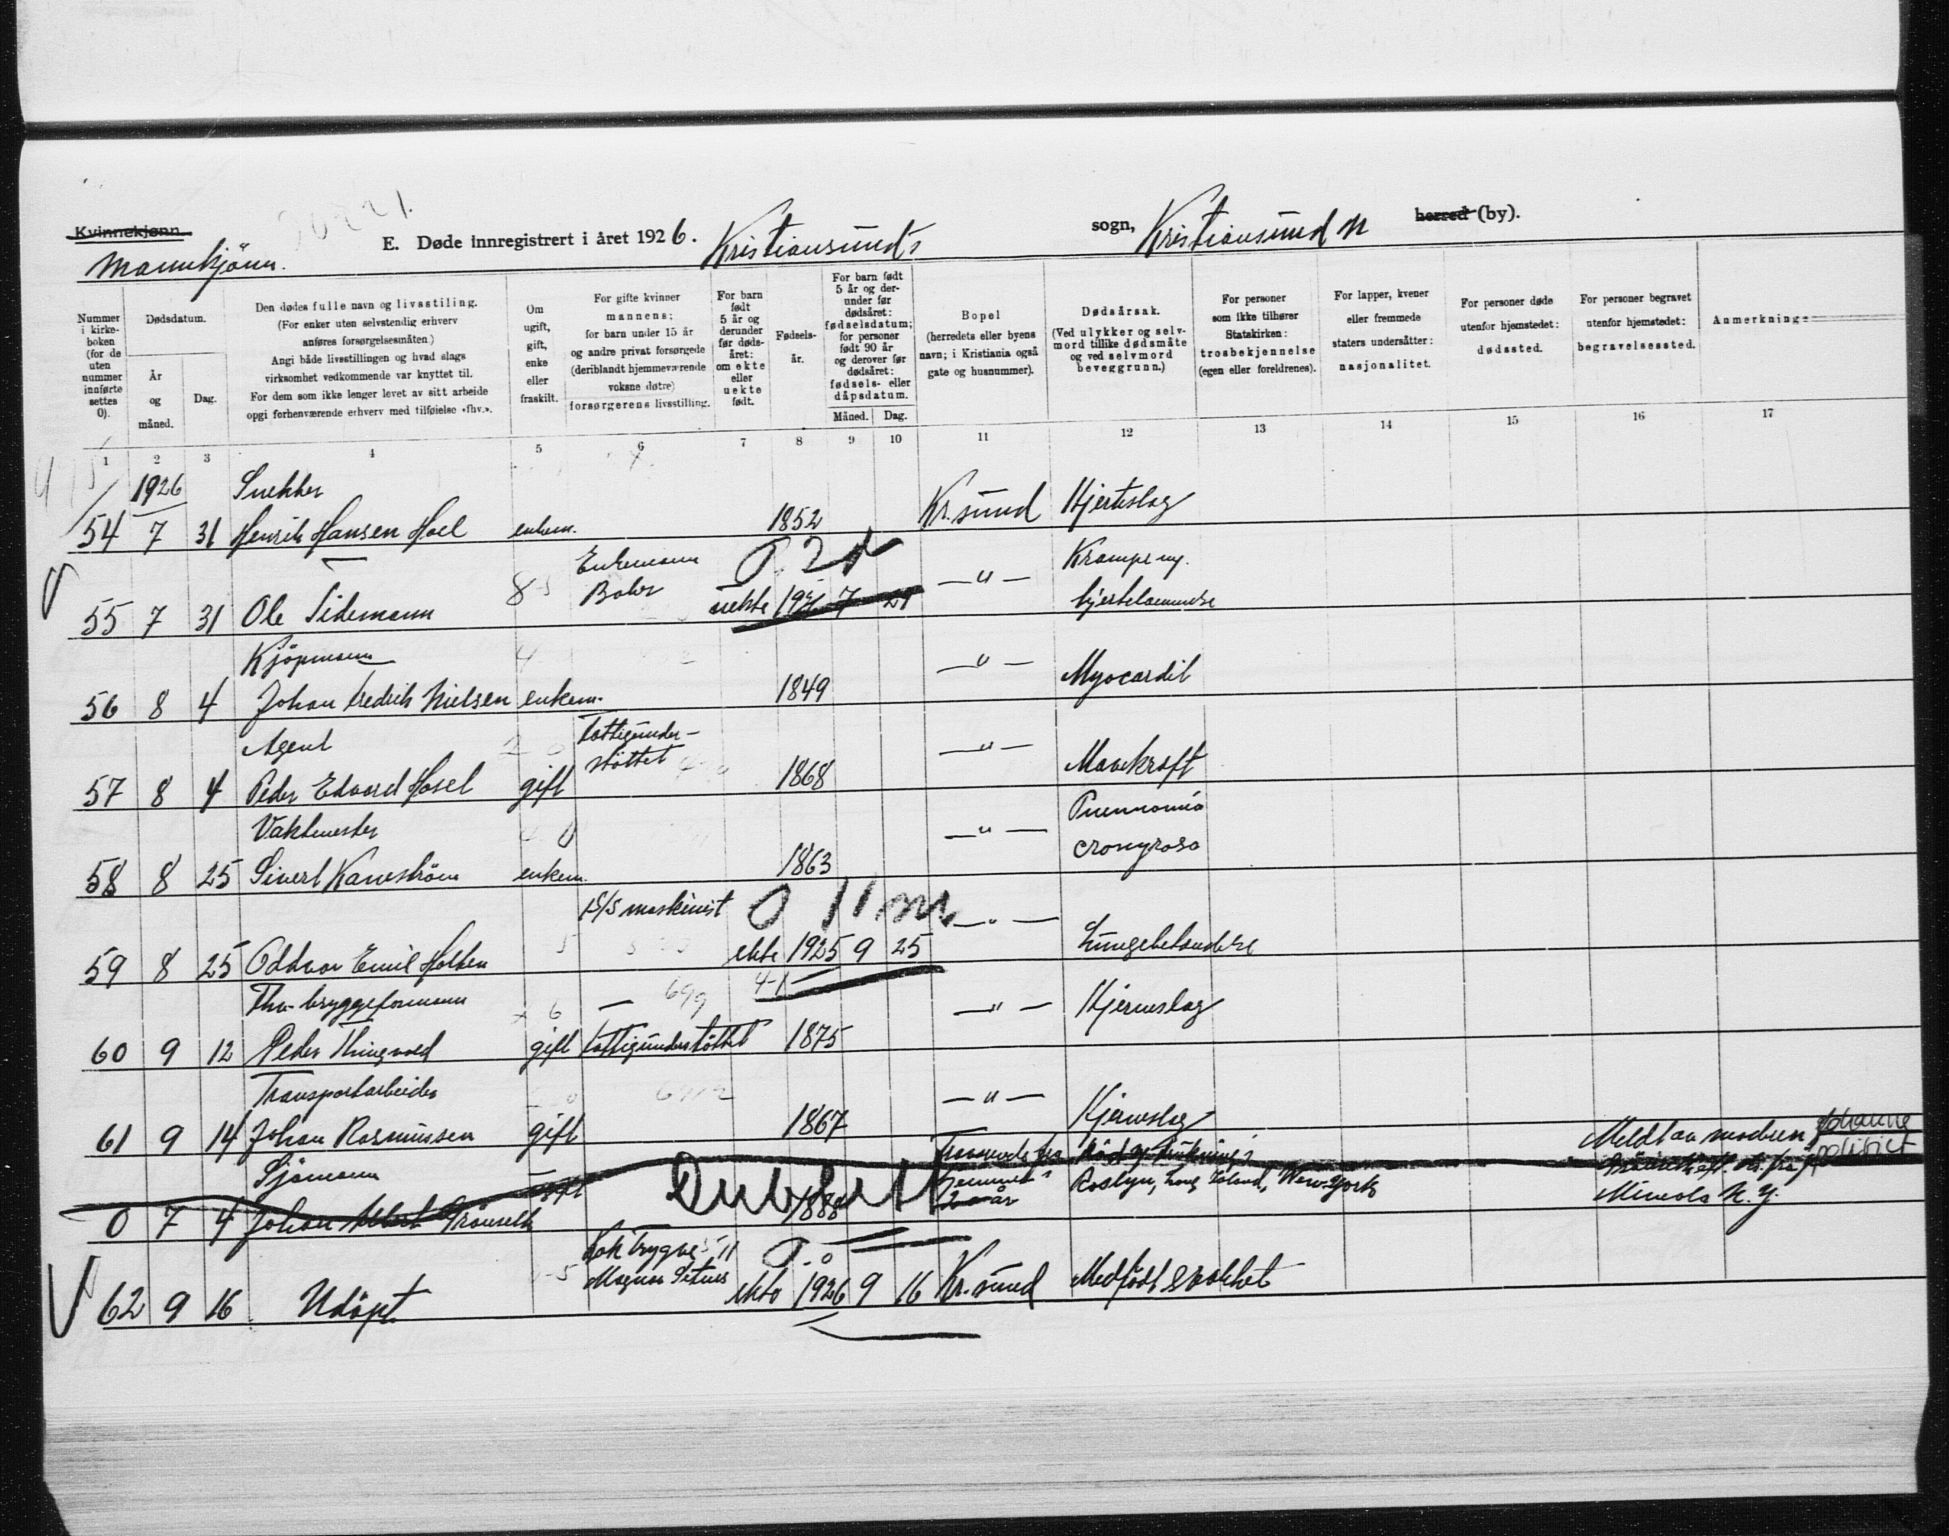 Kvinnekjønn.
Mannkjönn.
E. Døde innregistrert i året 1926. Kristiansunds sogn, Kristiansund N herred (by).
Nummer i kirkeboken (for de uten nummer innførte settes 0).
Dødsdatum.
År og måned.
Dag.
Den dødes fulle navn og livsstilling.
(For enker uten selvstendig erhverv anføres forsørgelsesmåten.)
Angi både livsstillingen og hvad slags virksomhet vedkommende var knyttet til.
For dem som ikke lenger levet av sitt arbeide opgi forhenværende erhverv med tilføielse «fhv.».
Om ugift, gift, enke eller fraskilt.
For gifte kvinner mannens; for barn under 15 år og andre privat forsørgede (deriblandt hjemmeværende voksne døtre) forsørgerens livsstilling.
For barn født 5 år og derunder før dødsåret: om ekte eller uekte født.
Fødselsår.
For barn født 5 år og derunder før dødsåret: fødselsdatum; for personer født 90 år og derover før dødsåret: fødsels- eller dåpsdatum.
Måned. Dag.
Bopel (herredets eller byens navn; i Kristiania også gate og husnummer).
Dødsårsak.
(Ved ulykker og selvmord tillike dødsmåte og ved selvmord beveggrunn.)
For personer som ikke tilhører Statskirken: trosbekjennelse (egen eller foreldrenes).
For lapper, kvener eller fremmede staters undersåtter: nasjonalitet.
For personer døde utenfor hjemstedet: dødssted.
For personer begravet utenfor hjemstedet: begravelsessted.
Anmerkninger
1 2 3 4 5 6 7 8 9 10 11 12 13 14 15 16 17
1926 Snekker
54 7 31 Henrik Hansen Hoel enkem. 1852 Kr.sund Hjerteslag
Enkemann Krampe og
55 7 31 Ole Sidemann uekte 1926 7 29 —"— hjertelammelse
Kjöpmann
56 8 4 Johan Fredrik Nielsen enkem. 1849 —"— Myocardit
Agent Fattigunder-
støttet
57 8 4 Peder Edvard Hosel gift 1868 —"— Mavekræft
Vaktmester Pneumonia
58 8 25 Sivert Kaneström enkem. 1863 —"— crouposa
D/S maskinist 0 11 m.
59 8 25 Oddvar Emil Holten ekte 1925 9 25 —"— Lungebetændelse
Fhv. bryggeformann
60 9 12 Peder Thingvold gift fattigunderstöttet 1875 —"— Hjerneslag
Transportarbeider
61 9 14 Johan Rasmussen gift 1867 —"— Hjerneslag
Sjömann Död ved drukning i Meldt av moderen Johanne
0 7 4 Johan Albert ugift 1888 2 år Roslyn, Long Island, New-York politiet Mineola N.Y.
Dubilett
Kok Trygve
62 9 16 Udöpt Magnus ekte 1926 9 16 Kr.sund Medfödt svakhet